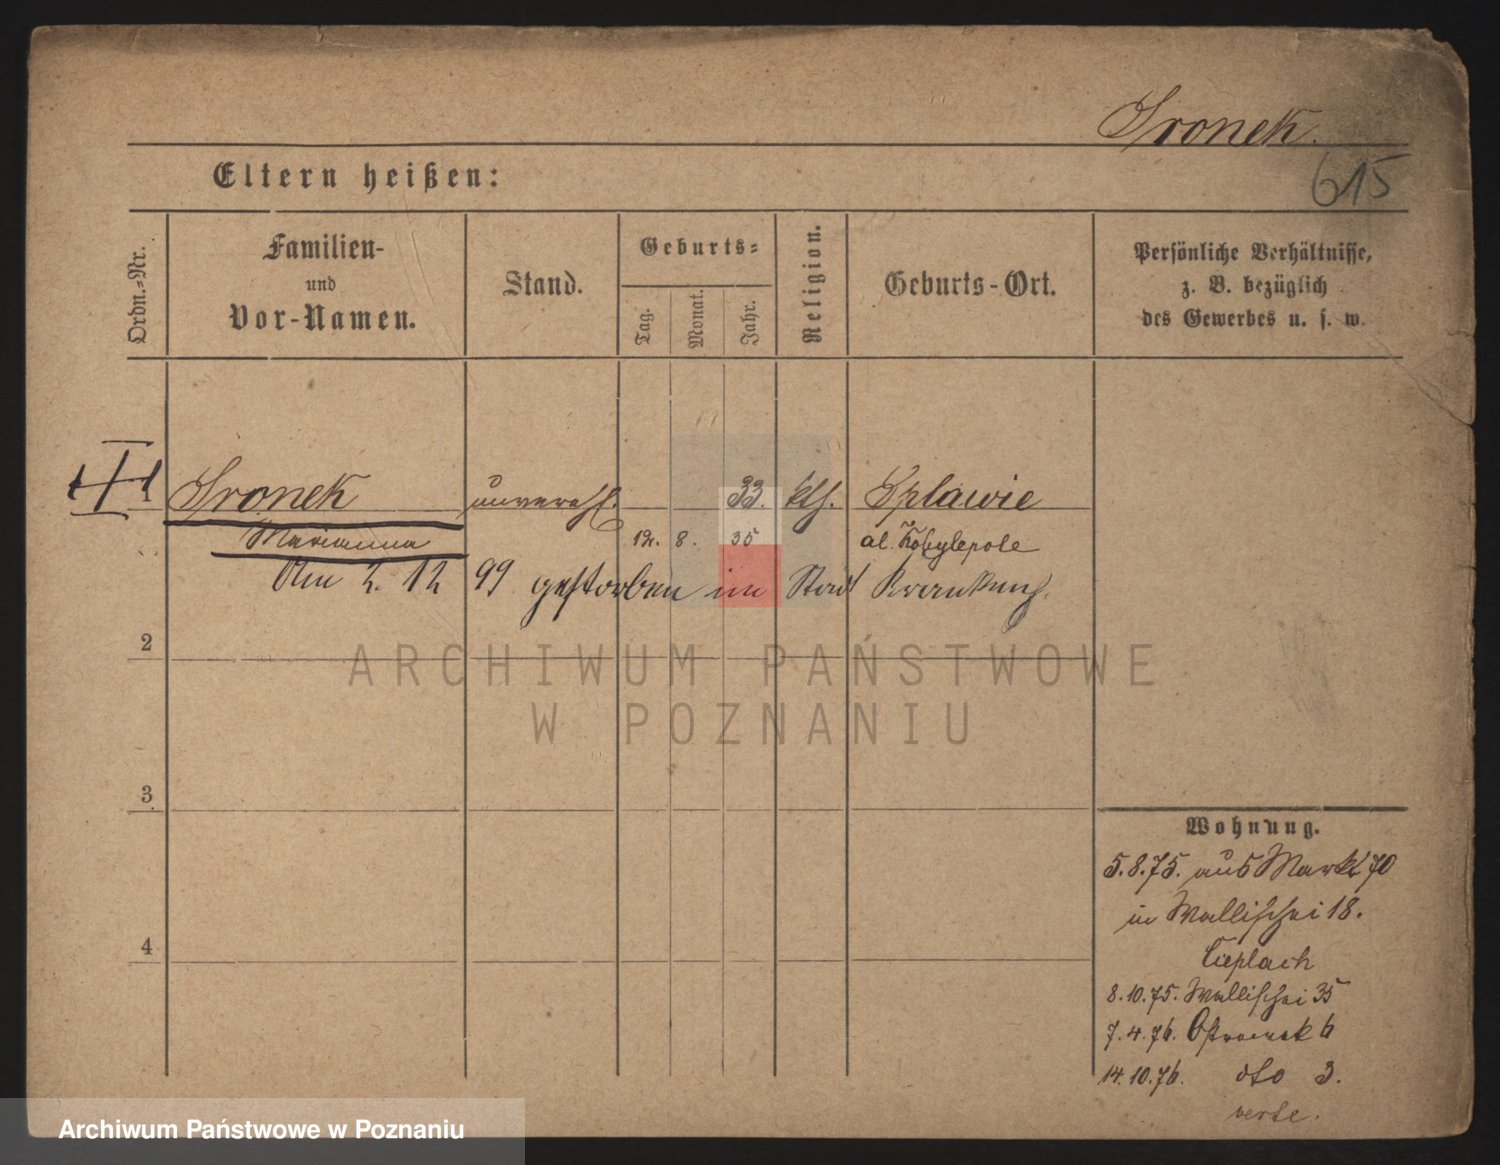 Sronek.
615
Eltern heißen:
Ordn.-Nr.
Familien-
und
Vor-Namen.
Stand.
Geburts-
Tag.
Monat.
Jahr.
Religion.
Geburts-Ort.
Persönliche Verhältnisse,
z. B. bezüglich
des Gewerbes u. s. w.
Sronek unvereh. 33. kth. Splawie
Marianna 12. 8. 35 al. Kobylepole
Am 2. 12 99 gestorben im Stadt Krankenh.
2
ARCHIWUM PAŃSTWOWE
W POZNANIU
3
4
Wohnung.
5.8.75. aus Markt 70
in Wallischei 18.
Cieplach
8.10.75. Wallischei 35
7.4.76. Ostrowek 6
14.10.76. dto 3.
verte.
Archiwum Państwowe w Poznaniu